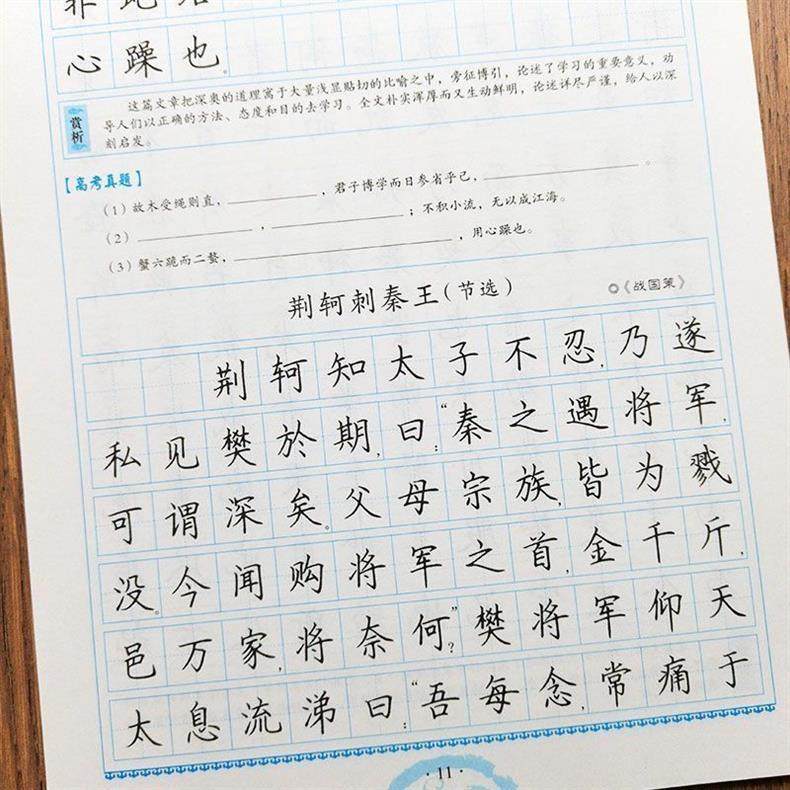 心躁也。
赏析
这篇文章把深奥的道理寓于大量浅显贴切的比喻之中，旁征博引，论述了学习的重要意义，劝
导人们以正确的方法、态度和目的去学习。全文朴实浑厚而又生动鲜明，论述详尽严谨，给人以深
刻启发。
【高考真题】
（1）故木受绳则直，____________，君子博学而日参省乎己，____________。
（2）____________，____________；不积小流，无以成江海。
（3）蟹六跪而二螯，____________，用心躁也。
荆轲刺秦王(节选)
◎《战国策》
荆轲知太子不忍，乃遂
私见樊於期，曰：“秦之遇将军，
可谓深矣。父母宗族，皆为戮
没。今闻购将军之首，金千斤，
邑万家，将奈何？”樊将军仰天
太息流涕曰：“吾每念，常痛于
·11·